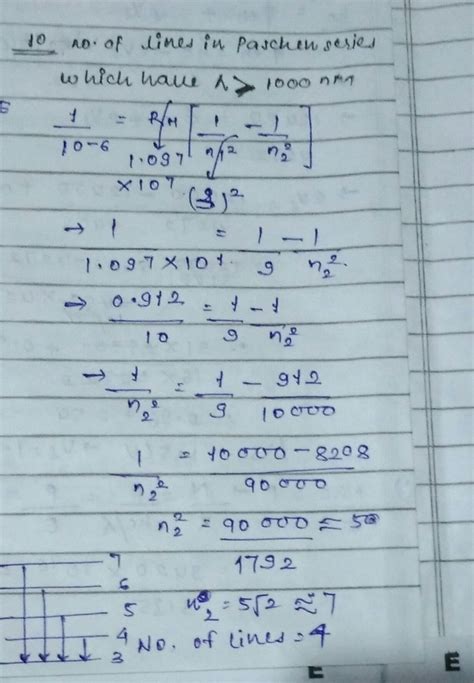 10 no. of lines in Paschen series
which have λ > 1000 nm
1/10-6 = RH [1/n1² - 1/n2²]
1.097
×10⁷
(3)²
→ 1/1.097×10¹ = 1/9 - 1/n2²
→ 0.912/10 = 1/9 - 1/n2²
→ 1/n2² = 1/9 - 912/10000
1/n2² = 10000-8208/90000
n2² = 90 000/1792 ≈ 50
7
6
5 n2 = 5√2 ≈ 7
4 No. of lines = 4
3
E E